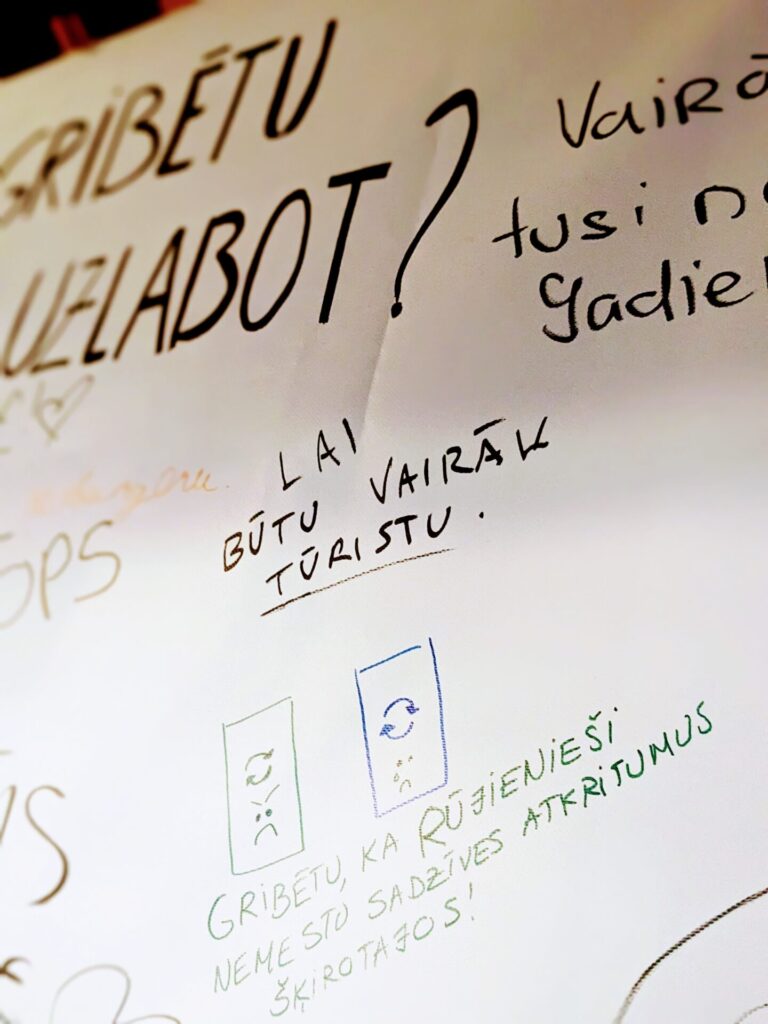 GRIBĒTU
UZLABOT?
tusi
LAI
BŪTU VAIRĀK
TŪRISTU.
GRIBĒTU, KA RŪJIENIEŠI
NEMESTU SADZĪVES ATKRITUMUS
ŠĶIROTAJOS!